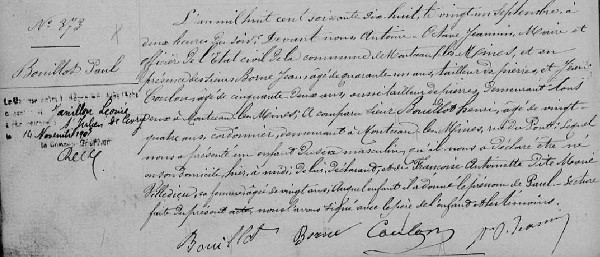 No. 373
Bouillot Paul
L'an mil huit cent soixante dix huit, le vingt un Septembre, à
deux heures du soir, Devant nous Antoine-Octave Jeannin, Maire et
officier de l'Etat civil de la commune de Montceau les Mines, et en
présence des sieurs Borne Jean, âgé de quarante un ans, tailleur de pierres, et
Coulon, âgé de cinquante deux ans, aussi tailleur de pierres, demeurant tous
deux à Montceau les Mines; A comparu sieur Bouillot Henri, âgé de vingt
quatre ans, cordonnier, demeurant à Montceau les Mines, rue du Pont; Lequel
nous a présenté un enfant du sexe masculin, qu'il nous a déclaré être né
en son domicile, hier, à midi, de lui, déclarant, et de Françoise Antoinette Dite Marie
Villedieu, sa femme, âgée de vingt ans, et auquel enfant il a donné le prénom de Paul. Lecture
faite du présent acte, nous l'avons signé avec le père de l'enfant et les témoins.
Léonie
14 Novembre
Bouillot Borne Coulon